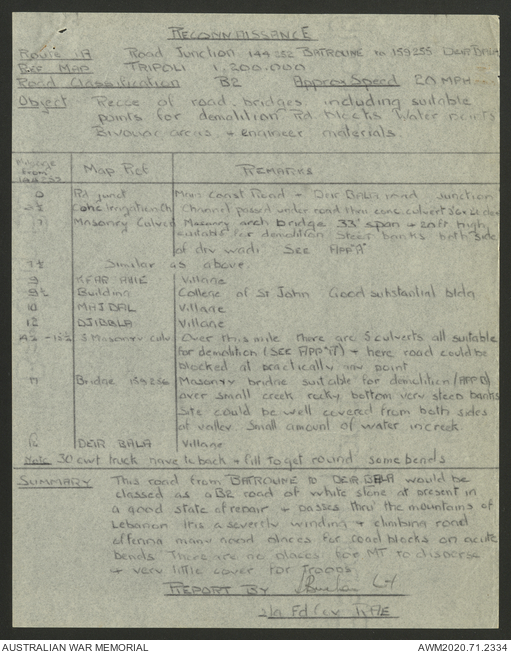 RECONNAISSANCE
Route 1A Road Junction 144252 BATROUNE to 159255 DEIR BALA
REF MAP TRIPOLI 1:200,000
Road Classification B2 Approx Speed 20 MPH
Object Recce of road, bridges, including suitable
points for demolition Rd blocks Water points
Bivouac areas & engineer materials.
Mileage from 144252 Map Ref REMARKS
0 Rd junct Main Coast Road & DEIR BALA road junction
Conc irrigation Ch Channel passed under road thro conc culvert
7 Masonry Culvert Masonry arch bridge 33' span & 20ft high
suitable for demolition Steep banks both side
of dry wadi SEE APP 'A'
7½ Similar as above.
9 Village
9½ Building College of St John Good substantial bldg
10 MAJDAL Village
12 DJIBBLA Village
14½ - 15½ 5 Masonry culv Over this mile there are 5 culverts all suitable
for demolition (SEE APP) & here road could be
blocked at practically any point
17 Bridge 159256 Masonry bridge suitable for demolition (APP D)
over small creek rocky bottom very steep banks
Site could be well covered from both sides
of valley. Small amount of water in creek
DEIR BALA Village
Note 30 cwt truck have to back & fill to get round some bends
SUMMARY This road from BATROUNE to DEIR BALA would be
classed as a B2 road of white stone at present in
a good state of repair & passes thru the mountains of
Lebanon It is a severely winding & climbing road
offering many good places for road blocks on acute
bends There are no places for MT to disperse
& very little cover for troops
REPORT BY Lt
Fd Coy RAE
AUSTRALIAN WAR MEMORIAL
AWM2020.71.2334